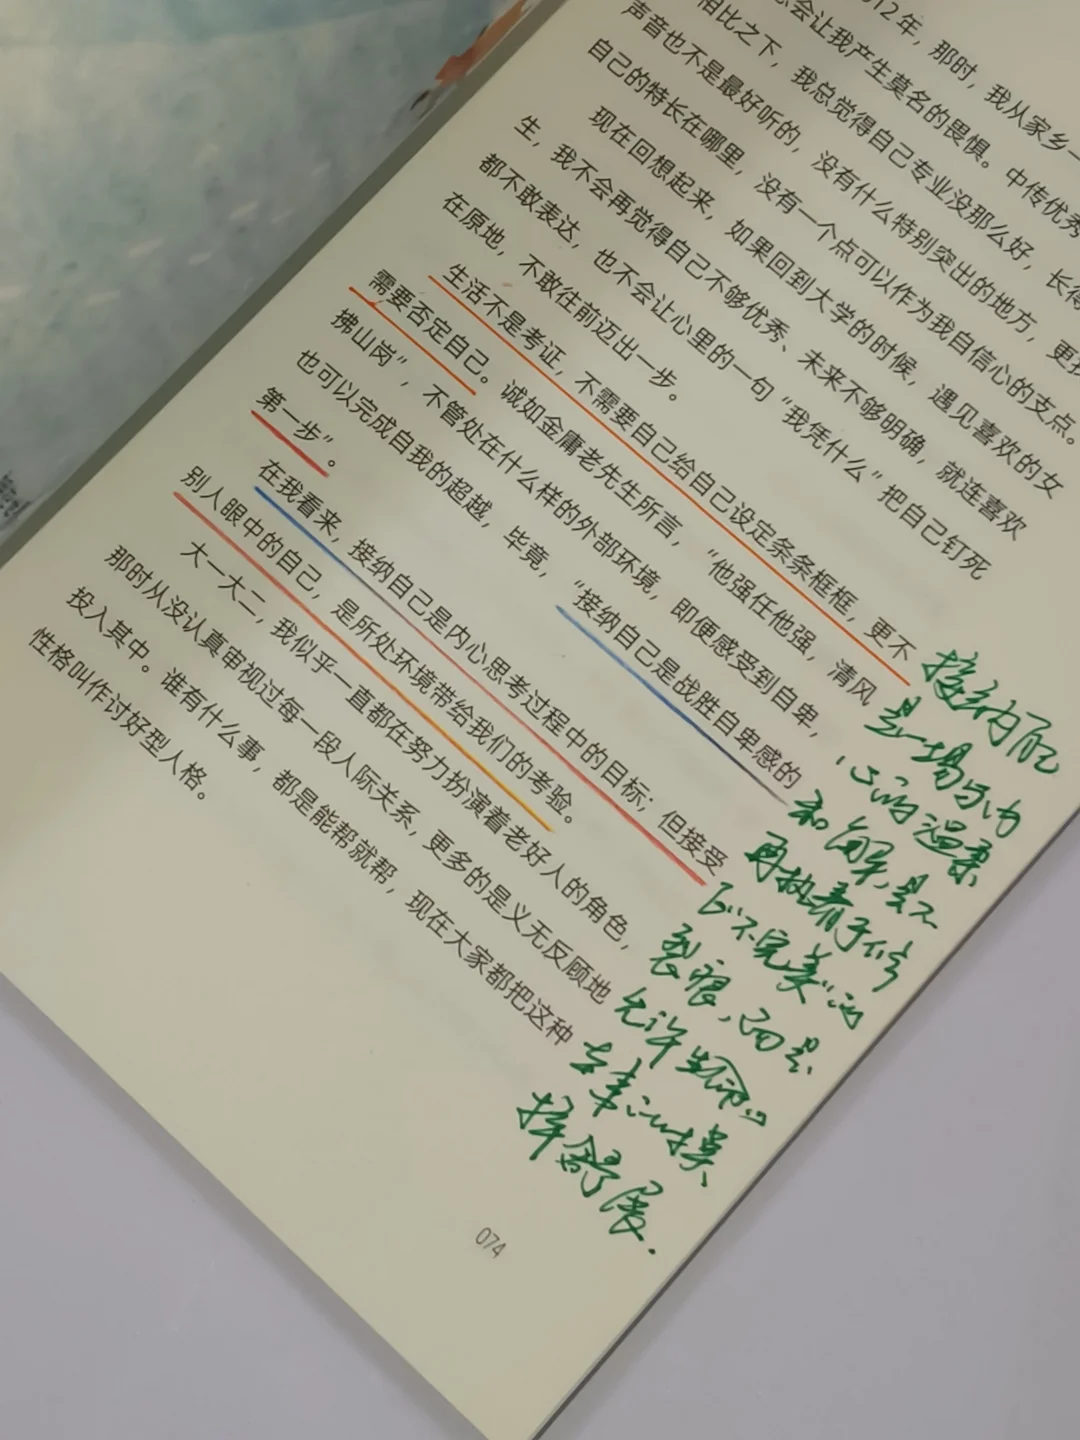 012年，那时，我从家乡一
会让我产生莫名的畏惧。中传优秀
相比之下，我总觉得自己专业没那么好，长得
声音也不是最好听的，没有什么特别突出的地方，更找
自己的特长在哪里，没有一个点可以作为我自信心的支点。
现在回想起来，如果回到大学的时候，遇见喜欢的女
生，我不会再觉得自己不够优秀、未来不够明确，就连喜欢
都不敢表达，也不会让心里的一句“我凭什么”把自己钉死
在原地，不敢往前迈出一步。
生活不是考证，不需要自己给自己设定条条框框，更不
需要否定自己。诚如金庸老先生所言，“他强任他强，清风
拂山岗”，不管处在什么样的外部环境，即便感受到自卑，
也可以完成自我的超越，毕竟，“接纳自己是战胜自卑感的
第一步”。
在我看来，接纳自己是内心思考过程中的目标；但接受
别人眼中的自己，是所处环境带给我们的考验。
大一大二，我似乎一直都在努力扮演着老好人的角色，
那时从没认真审视过每一段人际关系，更多的是义无反顾地
投入其中。谁有什么事，都是能帮就帮，现在大家都把这种
性格叫作讨好型人格。
接纳自己
是一场与内
心的温柔
和解，是不
再执着于修
“不完美”的
裂痕，而是
允许生命以
本来的模
样舒展.
074